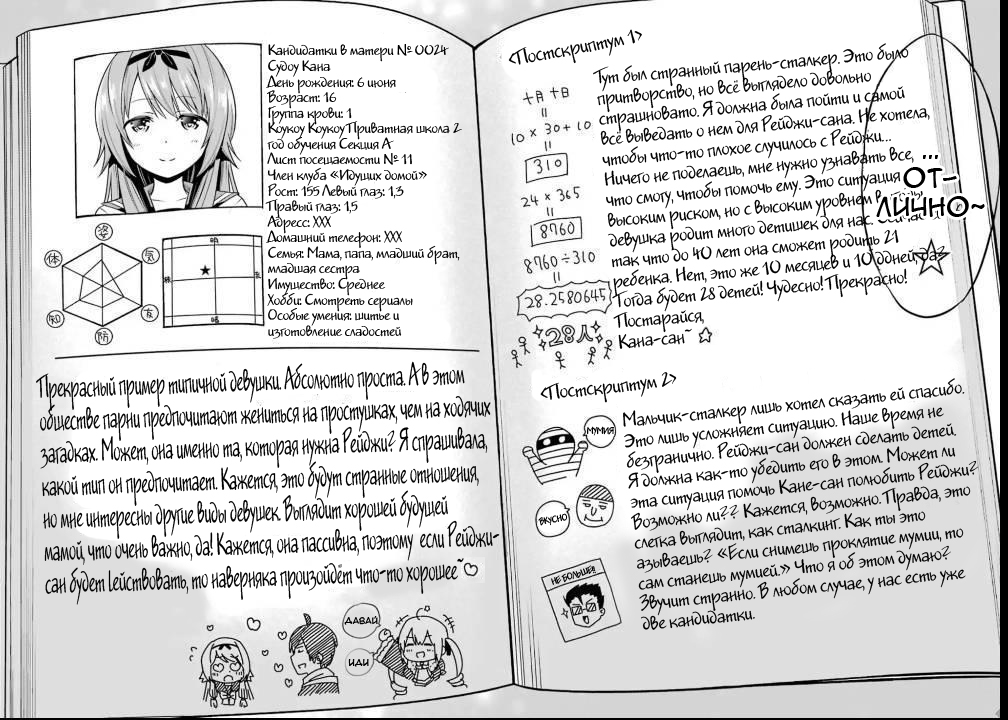 Кандидатки в матери № 0024
Судоу Кана
День рождения: 6 июня
Возраст: 16
Группа крови: 1
Коукоу Коукоу Приватная школа 2
год обучения Секция А
Лист посещаемости № 11
Член клуба «Идущих домой»
Рост: 155 Левый глаз: 1,3
Правый глаз: 1,5
Адрес: XXX
Домашний телефон: XXX
Семья: Мама, папа, младший брат,
младшая сестра
Имущество: Среднее
Хобби: Смотреть сериалы
Особые умения: шитье и
изготовление сладостей
姿
体
気
知
友
防
Прекрасный пример типичной девушки. Абсолютно проста. А в этом
обществе парни предпочитают жениться на простушках, чем на ходячих
загадках. Может, она именно та, которая нужна Рейджи? Я спрашивала,
какой тип он предпочитает. Кажется, это будут странные отношения,
но мне интересны другие виды девушек. Выглядит хорошей будущей
мамой, что очень важно, да! Кажется, она пассивна, поэтому если Рейджи-
сан будет lействовать, то наверняка произойдёт что-то хорошее~
ДАВАЙ
ИДИ
<Постскриптум 1>
十月十日
=
10 × 30 + 10
=
310
24 × 365
=
8760
8760 ÷ 310
=
28.2580645
28人
Тут был странный парень-сталкер. Это было
притворство, но всё выглядело довольно
страшновато. Я должна была пойти и самой
всё выведать о нем для Рейджи-сана. Не хотела,
чтобы что-то плохое случилось с Рейджи...
Ничего не поделаешь, мне нужно узнавать все,
что смогу, чтобы помочь ему. Это ситуация
высоким риском, но с высоким уровнем
девушка родит много детишек для нас.
так что до 40 лет она сможет родить 21
ребенка. Нет, это же 10 месяцев и 10 дней
Тогда будет 28 детей! Чудесно! Прекрасно!
Постарайся,
Кана-сан~ ☆
...
ОТ-
ЛИЧНО~
<Постскриптум 2>
МУМИЯ
ВКУСНО
НЕ БОЛЬШЕ!!
Мальчик-сталкер лишь хотел сказать ей спасибо.
Это лишь усложняет ситуацию. Наше время не
безгранично. Рейджи-сан должен сделать детей.
Я должна как-то убедить его в этом. Может ли
эта ситуация помочь Кане-сан полюбить Рейджи?
Возможно ли?? Кажется, возможно. Правда, это
слегка выглядит, как сталкинг. Как ты это
азываешь? «Если снимешь проклятие мумии, то
сам станешь мумией.» Что я об этом думаю?
Звучит странно. В любом случае, у нас есть уже
две кандидатки.